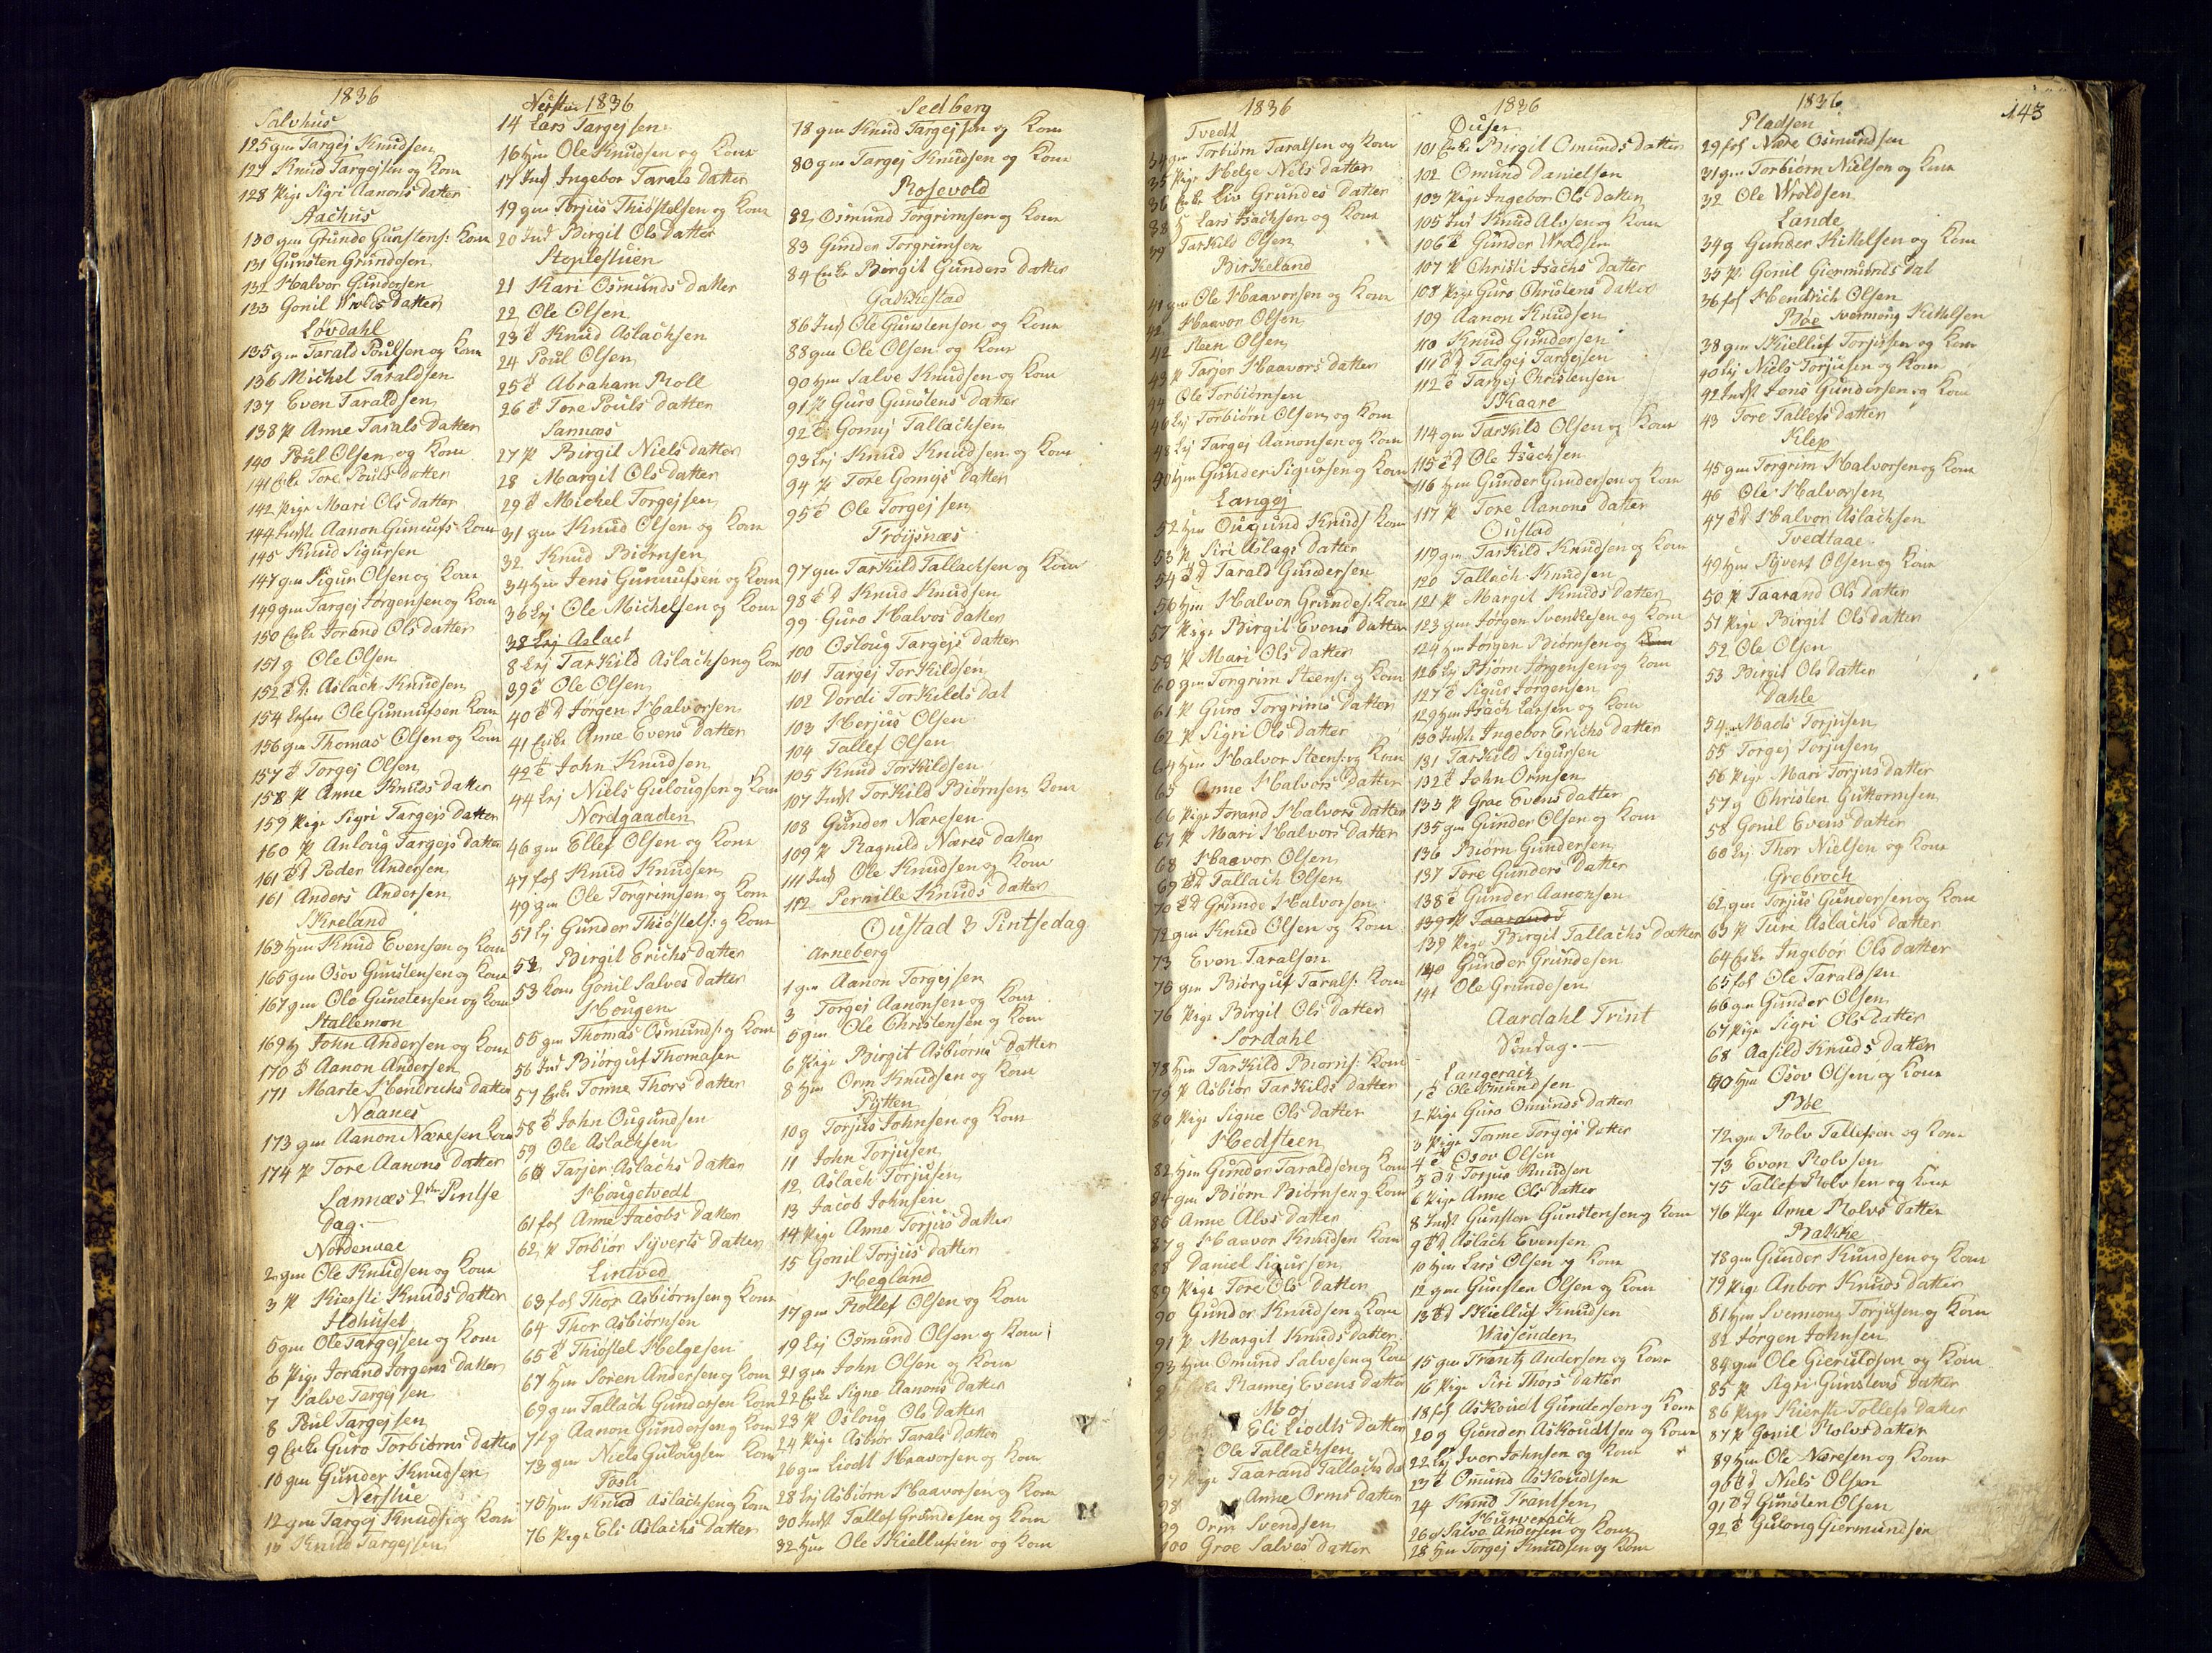 1836
Salvhus
125 gm Targej Knudsen
127 Knud Targejsen og Kone
128 Pige Sigri Aanons datter
Aachus
130 gm Grunde Gunstens: Kone
131 Gunsten Grundesen
132 Halvor Gundersen
133 Gonil Wrolds datter
Løvdahl
135 gm Tarald Poulsen og Kone
136 Michel Taraldsen
137 Even Taraldsen
138 P Anne Tarals datter
140 Poul Olsen og Kone
141 Enke Tore Pouls datter
142 Pige Mari Ols datter
144 Indst Aanon Gunnufs: Kone
145 Knud Sigursen
147 gm Sigur Olsen og Kone
149 gm Targej Jørgensen og Kone
150 Enke Jorand Ols datter
151 g Ole Olsen
152 Aslach Knudsen
154 Ole Gunnufsen Kone
156 gm Thomas Olsen og Kone
157 Torgej Olsen
158 P Anne Knuds datter
159 Pige Sigri Targejs datter
160 P Anloug Targejs datter
161 Peder Andersen
161 Anders Andersen
Skreland
163 Hm Knud Evensen og Kone
165 gm Osov Gunstensen og Kone
167 gm Ole Gunstensen og Kone
Stallemon
169 John Andersen og Kone
170 Aanon Andersen
171 Marte Hendrichs datter
Naanes
173 gm Aanon Næresen Kone
174 P Tore Aanons datter
Sannæs 2den Pintse
dag.
Nordenaae
2 gm Ole Knudsen og Kone
3 P Kiersti Knuds datter
Ildhuset
5 gm Ole Targejsen og Kone
6 Pige Jorand Jorgens datter
7 Salve Targejsen
8 Poul Targejsen
9 Enke Guro Torbiørns datter
10 gm Gunder Knudsen
Nerstue
12 gm Targej Knuds: og Kone
13 Knud Targejsen
Nerstue 1836
14 Lars Targejsen
16 Hm Ole Knudsen og Kone
17 Ind Ingebor Tarals datter
19 gm Torjus Thiøstelsen og Kone
20 Ind Birgit Ols datter
Stoplestuen
21 Kari Osmunds datter
22 Ole Olsen
23 Knud Aslachsen
24 Poul Olsen
25 Abraham Roll
26 Tore Pouls datter
Sannæs
27 P Birgit Niels datter
28 Margit Ols datter
29 Michel Torgejsen
31 gm Knud Olsen og Kone
32 Knud Biørnsen
34 Hm Jens Gunnufsen og Kone
36 Lej Ole Michelsen og Kone
38 Lej Aslact
8 Lej Tarkild Aslachsen og Kone
39 Ole Olsen
40 Jørgen Halvorsen
41 Enke Anne Evens datter
42 John Knudsen
44 Lej Niels Gulougsen og Kone
Nordgaaden
46 gm Ellef Olsen og Kone
47 fol Knud Knudsen
49 gm Ole Torgrimsen og Kone
51 Lej Gunder Thiøstels: og Kone
52 Birgit Erichs datter
53 Kone Gonil Salves datter
Hougen
55 gm Thomas Osmunds: og Kone
56 Ind Biørguf Thomasen
57 Enke Tonne Thors datter
58 John Ougundsen
59 Ole Aslachsen
60 Tarjer Aslachs datter
Hougetvedt
61 fol Anne Jacobs datter
62 P Torbiør Syverts datter
Lintved
63 fol Thor Asbiørnsen og Kone
64 Thor Asbiørnsen
65 Thiøstel Helgesen
67 Hm Soren Andersen og Kone
69 gm Tallach Gundersen Kone
71 g Aanon Gundersen og Kone
73 gm Niels Gulougsen Kone
Fosli
75 Hm Knud Aslachsen og Kone
76 Pige Eli Aslachs datter
Sedberg
78 gm Knud Targejsen og Kone
80 gm Targej Knudsen og Kone
Rosevold
82 Osmund Torgrimsen og Kone
83 Gunder Torgrimsen
84 Enke Birgit Gunders datter
Gakkestad
86 Ind Ole Gunstensen og Kone
88 gm Ole Olsen og Kone
90 Hm Salve Knudsen og Kone
91 P Guro Gunstens datter
92 Gomnj Tallachsen
93 Lej Knud Knudsen og Kone
94 P Tore Gomnjs datter
95 Ole Torgejsen
Frøysnæs
97 gm Tarkild Tallachsen og Kone
98 Knud Knudsen
99 Guro Halvos datter
100 Osloug Targejs datter
101 Targej Torkildsen
102 Dordi Torkilds dat
103 Herjus Olsen
104 Tallef Olsen
105 Knud Torkildsen
107 Indst Torkild Biørnsen Kone
108 Gunder Næresen
109 P Ragnild Næres datter
111 Ind Ole Knudsen og Kone
112 Pernille Knuds datter
Oustad 3 Pintsedag
Arneberg
1 gm Aanon Torgejsen
3 Torgej Aanonsen og Kone
5 gm Ole Christensen og Kone
6 Pige Birgit Asbiørns datter
8 Hm Orm Knudsen og Kone
Pytten
10 g Torjus Johnsen og Kone
11 John Torjusen
12 Aslach Torjusen
13 Jacob Johnsen
14 Pige Anne Torjus datter
15 Gonil Torjus datter
Hegland
17 gm Rollef Olsen og Kone
19 Lej Osmund Olsen og Kone
21 gm John Olsen og Kone
22 Enke Signe Aanons datter
23 P Osloug Ols datter
24 Pige Asbiør Tarals datter
26 gm Liodt Haavorsen og Kone
28 Lej Asbiørn Haavorsen og Kone
30 Indst Tallef Grundesen og Kone
32 Hm Ole Skiellufsen og Kone
1836
Tvedt
34 gm Torbiørn Taralsen og Kone
35 Pige Helge Nels datter
36 Enke Liv Grundes datter
38 Lars Isachsen og Kone
39 Tarkild Olsen
Birkeland
41 gm Ole Haavorsen og Kone
42 Haavor Olsen
42 Steen Olsen
43 P Tarjer Haavors datter
44 Ole Torbiørnsen
46 Lej Torbiørn Olsen og Kone
48 Lej Targej Aanonsen og Kone
50 Hm Gunder Sigursen og Kone
Langej
52 Hm Ougund Knuds: Kone
53 P Siri Aslags datter
54 Tarald Gundersen
56 Hm Halvor Grundes: Kone
57 Pige Birgit Evens datter
58 P Mari Ols datter
60 gm Torgrim Steens: og Kone
61 P Guro Torgrims datter
62 P Sigri Ols datter
64 Hm Halvor Steens: og Kone
65 Anne Halvors datter
66 Pige Jorand Halvors datter
67 P Mari Halvors datter
68 Haavor Olsen
69 Tallach Olsen
70 Grunde Halvorsen
72 gm Knud Olsen og Kone
73 Even Taralsen
75 gm Biørguf Tarals: Kone
76 Pige Birgit Ols datter
Sordahl
78 Hm Tarkild Biørns: Kone
79 P Asbiør Tarkilds datter
80 Pige Signe Ols datter
Hedsteen
82 Hm Gunder Taraldsen og Kone
84 gm Biørn Biørnsen og Kone
85 Anne Alvs datter
87 g Haavor Knudsen Kone
88 Daniel Sigursen
89 Pige Tore Ols datter
90 Gunder Knudsen Kone
91 P Margit Knuds datter
93 Hm Omund Salvesen og Kone
Rannej Evens datter
Moj
Eli Liodts datter
Ole Tallachsen
97 Pige Taarand Tallachs da
98 Anne Orms datter
99 Orm Svendsen
100 Groe Salves datter
1836
Ouser
101 Enke Birgit Omunds datter
102 Omund Danielsen
103 Pige Ingebor Ols datter
105 Ind Knud Alvsen og Kone
106 Gunder Wroldsen
107 P Christi Isachs datter
108 Pige Guro Christens datter
109 Aanon Knudsen
110 Knud Gundersen
111 Targej Targejsen
112 Targej Christensen
Skaare
114 gm Tarkild Olsen og Kone
115 Ole Isachsen
116 Hm Gunder Gundersen og Kone
117 P Tore Aanons datter
Oustad
119 gm Tarkild Knudsen og Kone
120 Tallach Knudsen
121 P Margit Knuds datter
123 gm Jørgen Svenkesen og Kone
124 Hm Jørgen Biørnsen og Kone
126 Lej Biørn Jørgensen og Kone
127 Sigur Jørgensen
129 Hm Isach Larsen og Kone
130 Indst Ingebor Erichs datter
131 Tarkild Sigursen
132 John Ormsen
133 P Groe Evens datter
135 gm Gunder Olsen og Kone
136 Biørn Gundersen
137 Tore Gunders datter
138 Gunder Aanonsen
139 P Taarands
139 Pige Birgit Tallachs datter
140 Gunder Grundesen
141 Ole Grundesen
Aardahl Trint
Søndag.
Langerach
1 Ole Omundsen
2 Pige Guro Omunds datter
3 Pige Tonne Torgejs datter
4 Osov Olsen
5 Torjus Knudsen
6 Pige Anne Ols datter
8 Indst Gunsten Gunstensen og Kone
9 Aslach Evensen
10 Hm Lars Olsen og Kone
12 gm Gunsten Olsen og Kone
13 Skielluf Knudsen
Wassenden
15 gm Frantz Andersen og Kone
16 Pige Siri Thors datter
18 fol Askoudt Gundersen og Kone
20 g Gunder Askoudtsen og Kone
22 Lej Iver Johnsen og Kone
23 Omund Askoudtsen
24 Knud Frantsen
Hurverach
26 Salve Andersen og Kone
28 Hm Torgej Knudsen og Kone
1836
143
Pladsen
29 fol Nære Osmundsen
31 gm Torbiørn Nielsen og Kone
32 Ole Wroldsen
Lande
34 g Gunder Kittelsen og Kone
35 P: Gonil Giermunds dat
36 fol Hendrich Olsen
Bøe Svermong Kittelsen
38 gm Skielluf Torjussen og Kone
40 Lej Niels Torjusen og Kone
42 Indst Jens Gundersen og Kone
43 Tore Tallefs datter
Klep
45 gm Torgrim Halvorsen og Kone
46 Ole Halvorsen
47 Halvor Aslachsen
Tvedtaae
49 Hm Syvert Olsen og Kone
50 P Taarand Ols datter
51 Pige Birgit Ols datter
52 Ole Olsen
53 Birgit Ols datter
Dahle
54 Mads Torjusen
55 Torgej Torjusen
56 Pige Mari Torjus datter
57 g Christen Guttormsen
58 Gonil Evens datter
60 Lej Thor Nielsen og Kone
Grebroch
62 gm Torjus Gundersen og Kone
63 P Turi Aslachs datter
64 Enke Ingebor Ols datter
65 fol Ole Taraldsen
66 gm Gunder Olsen
67 Pige Sigri Ols datter
68 Aasild Knuds datter
70 Hm Osov Olsen og Kone
Bøe
72 gm Rolv Tallefsen og Kone
73 Even Rolvsen
75 Tallef Rolvsen og Kone
76 Pige Anne Rolvs datter
Bakke
78 gm Gunder Knudsen og Kone
79 Pige Anbor Knuds datter
81 Hm Svermong Torjusen og Kone
82 Jørgen Johnsen
84 gm Ole Gieruldsen og Kone
85 P Sigri Gunstens datter
86 Pige Kiersti Tollefs datter
87 P Gonil Rolvs datter
89 Hm Ole Næresen og Kone
90 Niels Olsen
91 Gunsten Olsen
92 Gulong Giermundsen